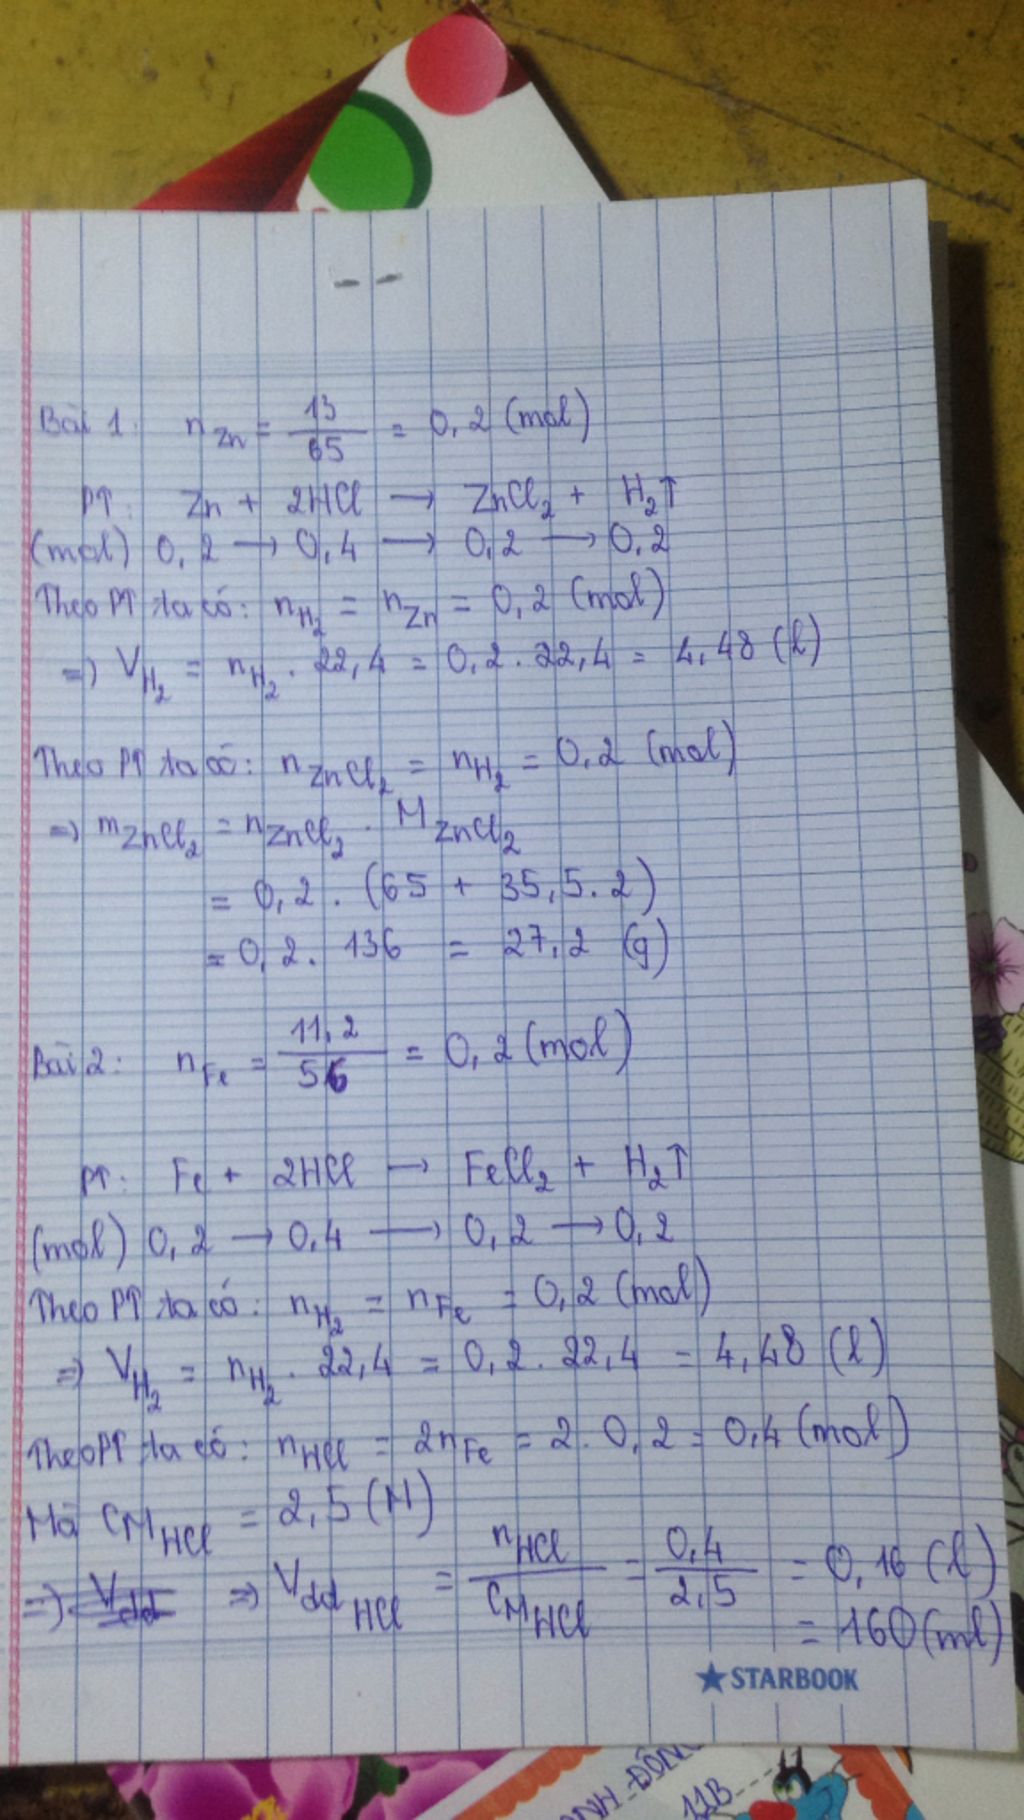 Bài 1: n_Zn = 13/65 = 0,2 (mol)
PT: Zn + 2HCl → ZnCl₂ + H₂↑
(mol) 0,2 → 0,4 → 0,2 → 0,2
Theo PT ta có: n_H₂ = n_Zn = 0,2 (mol)
=) V_H₂ = n_H₂ . 22,4 = 0,2 . 22,4 = 4,48 (l)
Theo PT ta có: n_ZnCl₂ = n_H₂ = 0,2 (mol)
=) m_ZnCl₂ = n_ZnCl₂ . M_ZnCl₂
= 0,2 . (65 + 35,5.2)
= 0,2 . 136 = 27,2 (g)
Bài 2: n_Fe = 11,2/56 = 0,2 (mol)
PT: Fe + 2HCl → FeCl₂ + H₂↑
(mol) 0,2 → 0,4 → 0,2 → 0,2
Theo PT ta có: n_H₂ = n_Fe = 0,2 (mol)
=) V_H₂ = n_H₂ . 22,4 = 0,2 . 22,4 = 4,48 (l)
Theo PT ta có: n_HCl = 2n_Fe = 2 . 0,2 = 0,4 (mol)
Mà CM_HCl = 2,5 (M)
=) Vdd =) Vdd_HCl = n_HCl/CM_HCl = 0,4/2,5 = 0,16 (l)
= 160 (ml)
STARBOOK
11B